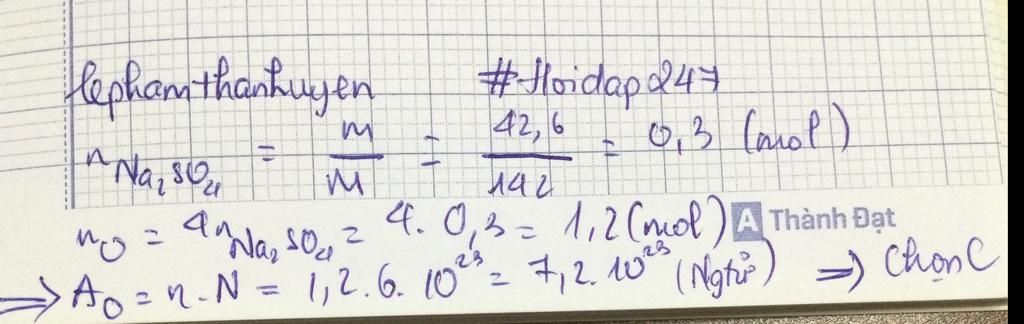 lephamthanhuyen #Hoidap247
n Na₂SO₄ = m/M = 42,6/142 = 0,3 (mol)
nO = 4nNa₂SO₄ = 4. 0,3 = 1,2 (mol) A Thành Đạt
=> AO = n.N = 1,2.6.10²³ = 7,2.10²³ (Ngtử) => Chọn C